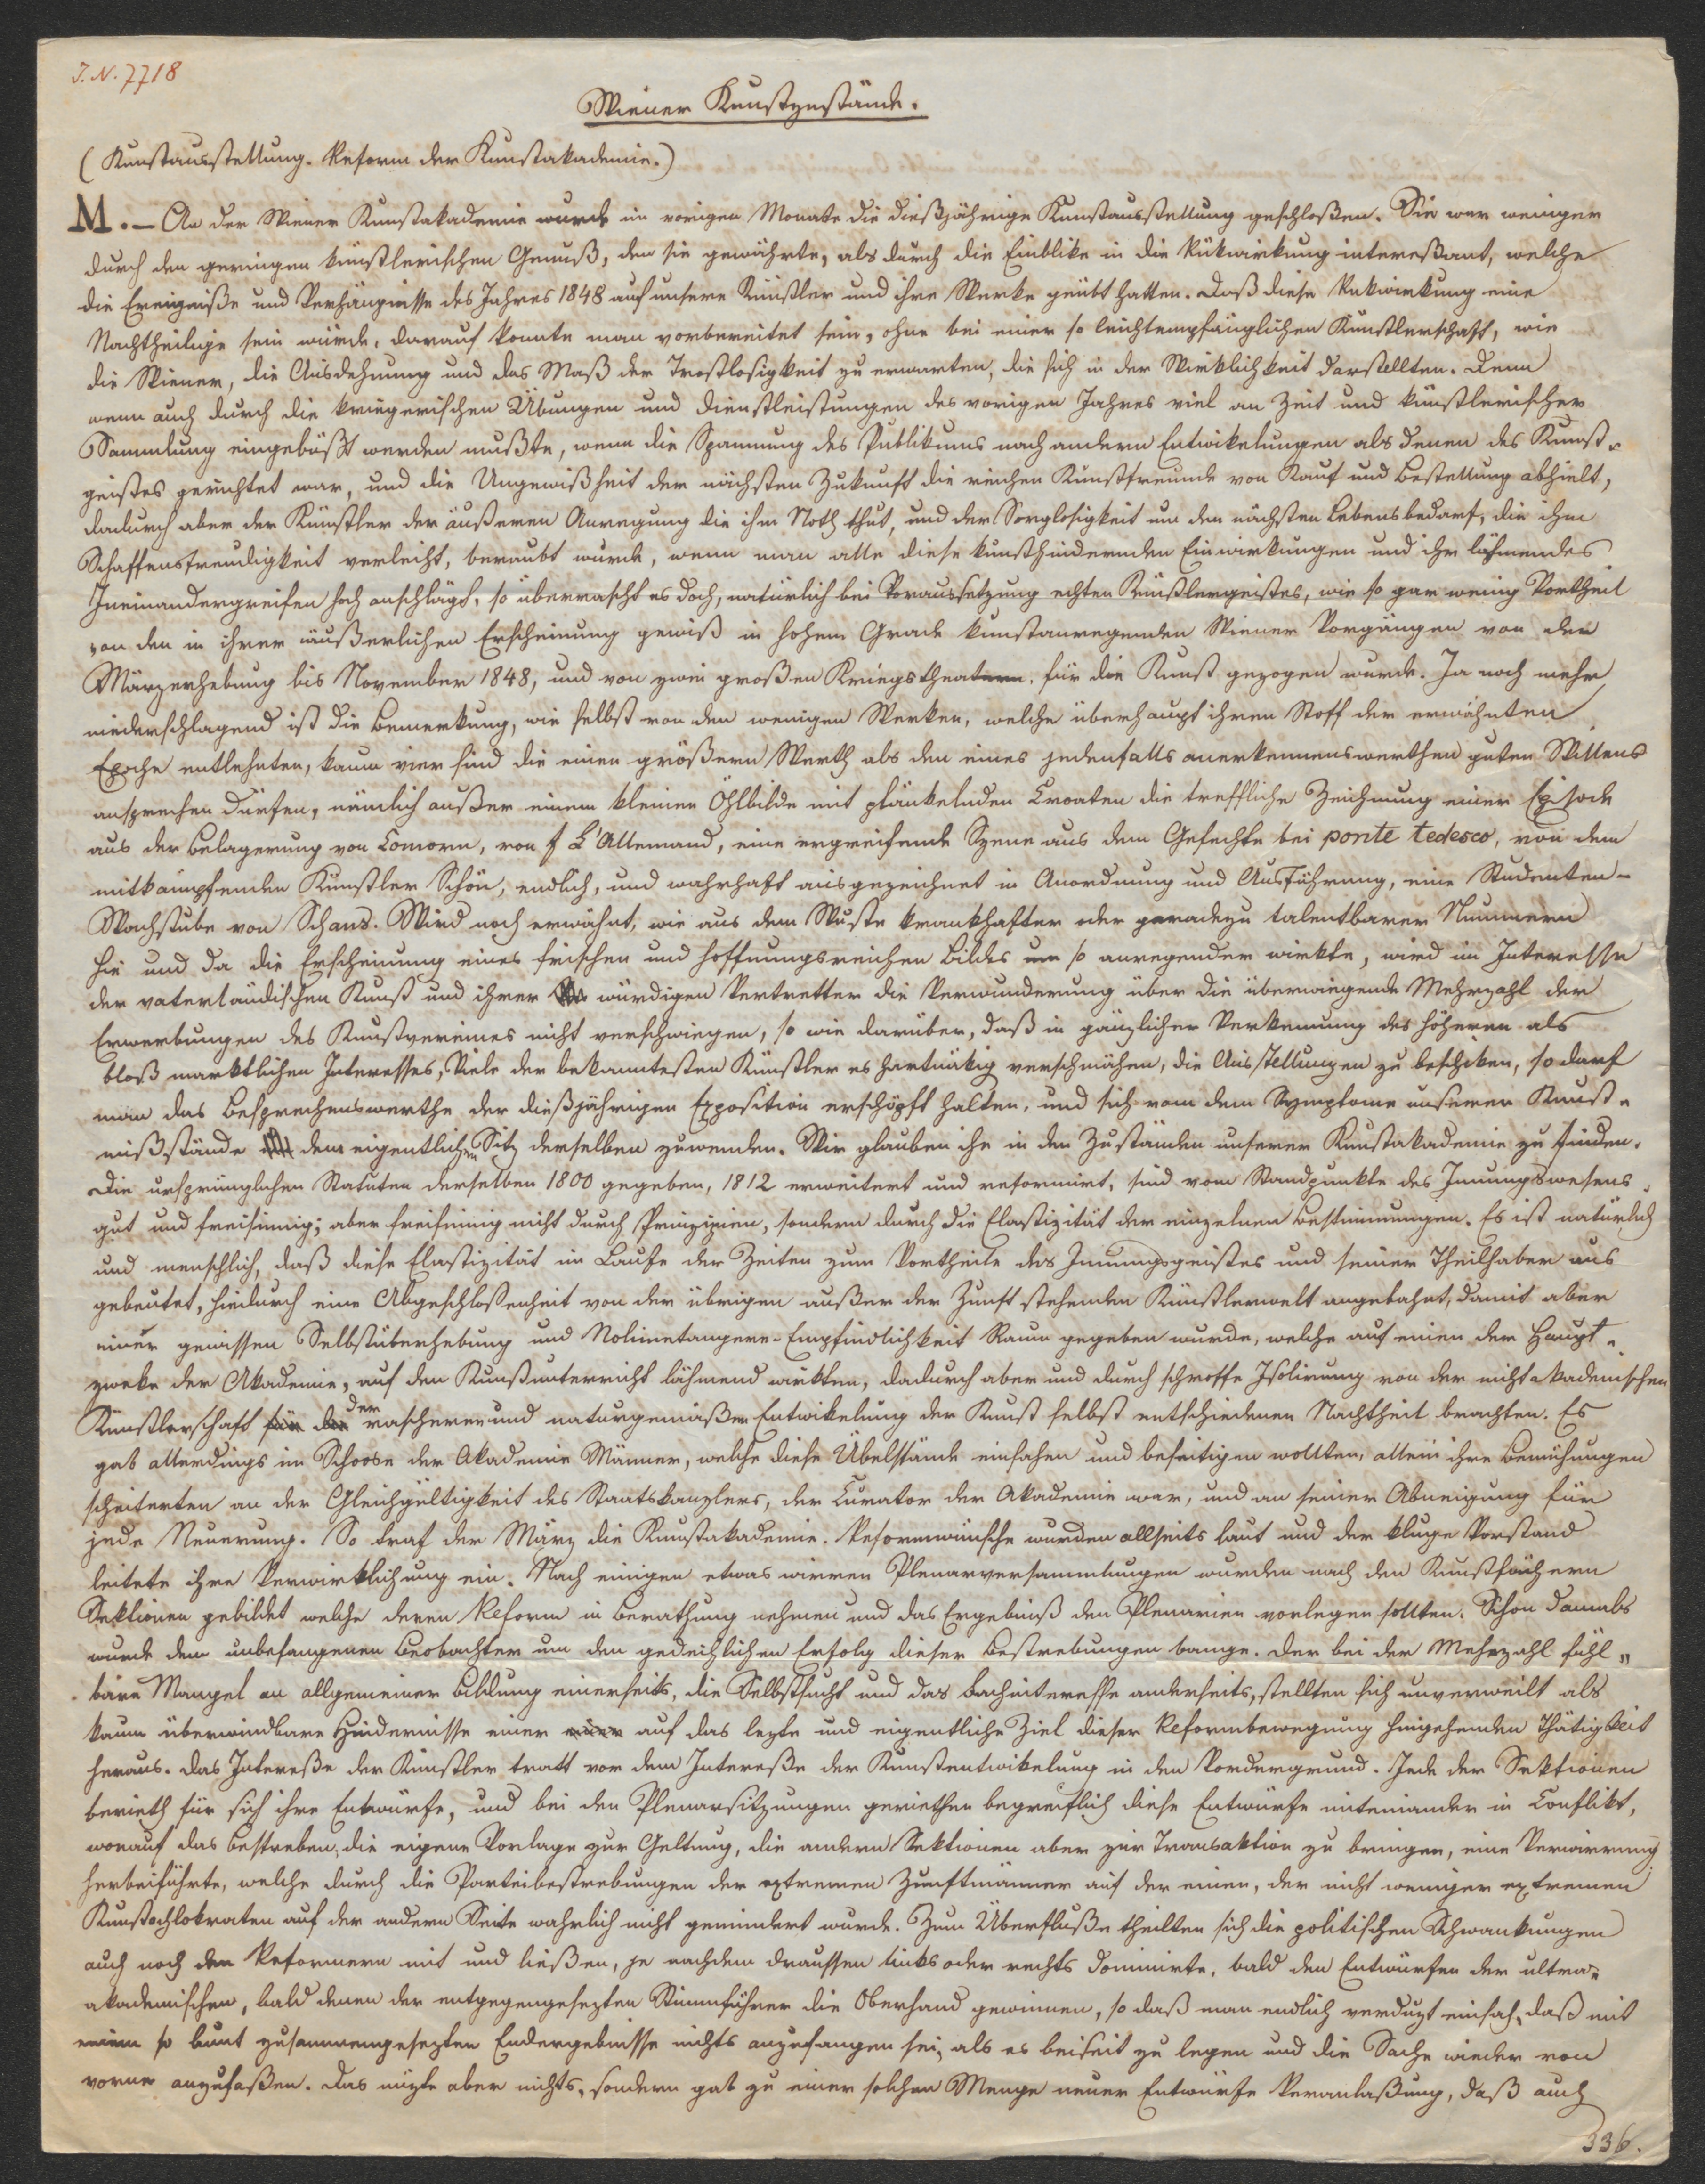 I.N. 7718
Wiener Kunstzustände.
(Kunstausstellung. Reform der Kunstakademie.)
M. – An der Wiener Kunstakademie wurde im vorigen Monate die dießjährige Kunstausstellung geschloßen. Sie war weniger
durch den geringen künstlerischen Genuß, den sie gewährte, als durch die Einblike in die Rükwirkung intereßant, welche
die Ereigniße und Verhängnisse des Jahres 1848 auf unsere Künstler und ihre Werke geübt hatten. Daß diese Rükwirkung eine
Nachtheilige sein würde, darauf konnte man vorbereitet sein, ohne bei einer so leichtempfänglichen Künstlerschaft, wie
die Wiener, die Ausdehnung und das Maß der Trostlosigkeit zu erwarten, die sich in der Wirklichkeit darstellten. Denn
wenn auch durch die kriegerischen Übungen und Dienstleistungen des vorigen Jahres viel an Zeit und künstlerischer
Sammlung eingebüßt werden mußte, wenn die Spannung des Publikums nach andern Entwikelungen als denen des Kunst-
geistes gerichtet war, und die Ungewißheit der nächsten Zukunft die reichen Kunstfreunde von Kauf und Bestellung abhielt,
dadurch aber der Künstler der äußeren Anregung die ihm Noth thut, und der Sorglosigkeit um den nächsten Lebensbedarf, die ihm
Schaffensfreudigkeit verleiht, beraubt wurde, wenn man alle diese kunsthindernden Einwirkungen und ihr lähmendes
Ineinandergreifen hoch anschlägt, so überrascht es doch, natürlich bei Voraussetzung echten Künstlergeistes, wie so gar wenig Vortheil
von den in ihrer äußerlichen Erscheinung gewiß in hohem Grade kunstanregenden Wiener Vorgängen von der
Märzerhebung bis November 1848, und von zwei großen Kriegstheatern, für die Kunst gezogen wurde. Ja noch mehr
niederschlagend ist die Bemerkung, wie selbst von den wenigen Werken, welche überhaupt ihren Stoff der erwähnten
Epoche entlehnten, kaum vier sind die einen größern Werth als den eines jedenfalls anerkennenswerthen guten Willens
ansprechen dürfen, nämlich außer einem kleinen Öhlbilde mit plänkelnden Croaten die treffliche Zeichnung einer Episode
aus der Belagerung von Comorn, von f L'Allemand, eine ergreifende Szene aus dem Gefechte bei ponte tedesco, von dem
mitkämpfenden Künstler Schön, endlich, und wahrhaft ausgezeichnet in Anordnung und Ausführung, eine Studenten-
Wachstube von Schams. Wird noch erwähnt, wie aus dem Wuste krankhafter oder geradezu talentbarer Nummern
hie und da die Erscheinung eines frischen und hoffnungsreichen Bildes um so anregender wirkte, wird im Interesse
der vaterländischen Kunst und ihrer würdigen Vertretter die Verwunderung über die überwiegende Mehrzahl der
Erwerbungen des Kunstvereines nicht verschwiegen, so wie darüber, daß in gänzlicher Verkennung des höheren als
bloß marktlichen Interesses, Viele der bekanntesten Künstler es hartnäkig verschmähen, die Ausstellungen zu beschiken, so darf
man das Besprechenswerthe der dießjährigen Exposition erschöpft halten, und sich von dem Symptome unserer Kunst-
mißstände dem eigentlichen Sitz derselben zuwenden. Wir glauben ihn in den Zuständen unserer Kunstakademie zu finden.
Die ursprünglichen Statuten derselben 1800 gegeben, 1812 erweitert und reformirt, sind vom Standpunkte des Innungswesens
gut und freisinnig; aber freisinnig nicht durch Prinzipien, sondern durch die Elastizität der einzelnen Bestimmungen. Es ist natürlich
und menschlich, daß diese Elastizität im Laufe der Zeiten zum Vortheile des Innungsgeistes und seiner Theilhaber aus
gebeutet, hiedurch eine Abgeschloßenheit von der übrigen außer der Zunft stehenden Künstlerwelt angebahnt, damit aber
einer gewissen Selbstüberhebung und Nolimetangere-Empfindlichkeit Raum gegeben wurde, welche auf einen der Haupt-
zweke der Akademie, auf den Kunstunterricht lähmend wirkten, dadurch aber und durch schroffe Isolirung von der nicht akademischen
Künstlerschaft für der rascheren und naturgemäßen Entwikelung der Kunst selbst entschiedenen Nachtheil brachten. Es
gab allerdings im Schoose der Akademie Männer, welche diese Übelstände einsahen und beseitigen wollten, allein ihre Bemühungen
scheiterten an der Gleichgültigkeit des Staatskanzlers, der Curator der Akademie war, und an seiner Abneigung für
jede Neuerung. So traf der März die Kunstakademie. Reformwünsche wurden allseits laut und der kluge Vorstand
leitete ihre Verwirklichung ein. Nach einigen etwas wirren Plenarversammlungen wurden nach den Kunstfächern
Sektionen gebildet welche deren Reform in Berathung nehmen und das Ergebniß den Plenarien vorlegen sollten. Schon damals
wurde dem unbefangenen Beobachter um den gedeihlichen Erfolg dieser Bestrebungen bange. Der bei der Mehrzahl fühl-
bare Mangel an allgemeiner Bildung einerseits, die Selbstsucht und das Fachinteresse anderseits, stellten sich unverweilt als
kaum überwindbare Hindernisse einer auf das lezte und eigentliche Ziel dieser Reformbewegung hingehenden Thätigkeit
heraus. Das Intereße der Künstler tratt vor dem Intereße der Kunstentwikelung in den Vordergrund. Jede der Sektionen
berieth für sich ihre Entwürfe, und bei den Plenarsitzungen geriethen begreiflich diese Entwürfe miteinander in Conflikt,
worauf das Bestreben, die eigene Vorlage zur Geltung, die andern Sektionen aber zur Transaktion zu bringen, eine Verwirrung
herbeiführte, welche durch die Parteibestrebungen der extremen Zunftmänner auf der einen, der nicht weniger extremen
Kunstochlokraten auf der andern Seite wahrlich nicht gemindert wurde. Zum Überfluße theilten sich die politischen Schwankungen
auch noch den Reformern mit und ließen, je nachdem draussen links oder rechts dominirte, bald den Entwürfen der ultra-
akademischen, bald denen der entgegengesezten Stimmführer die Oberhand gewinnen, so daß man endlich verduzt einsah, daß mit
einem so bunt zusammengesezten Endergebnisse nichts anzufangen sei, als es beiseit zu legen und die Sache wieder von
vorne anzufaßen. Das nüzte aber nichts, sondern gab zu einer solchen Menge neuer Entwürfe Veranlaßung, daß auch
336.